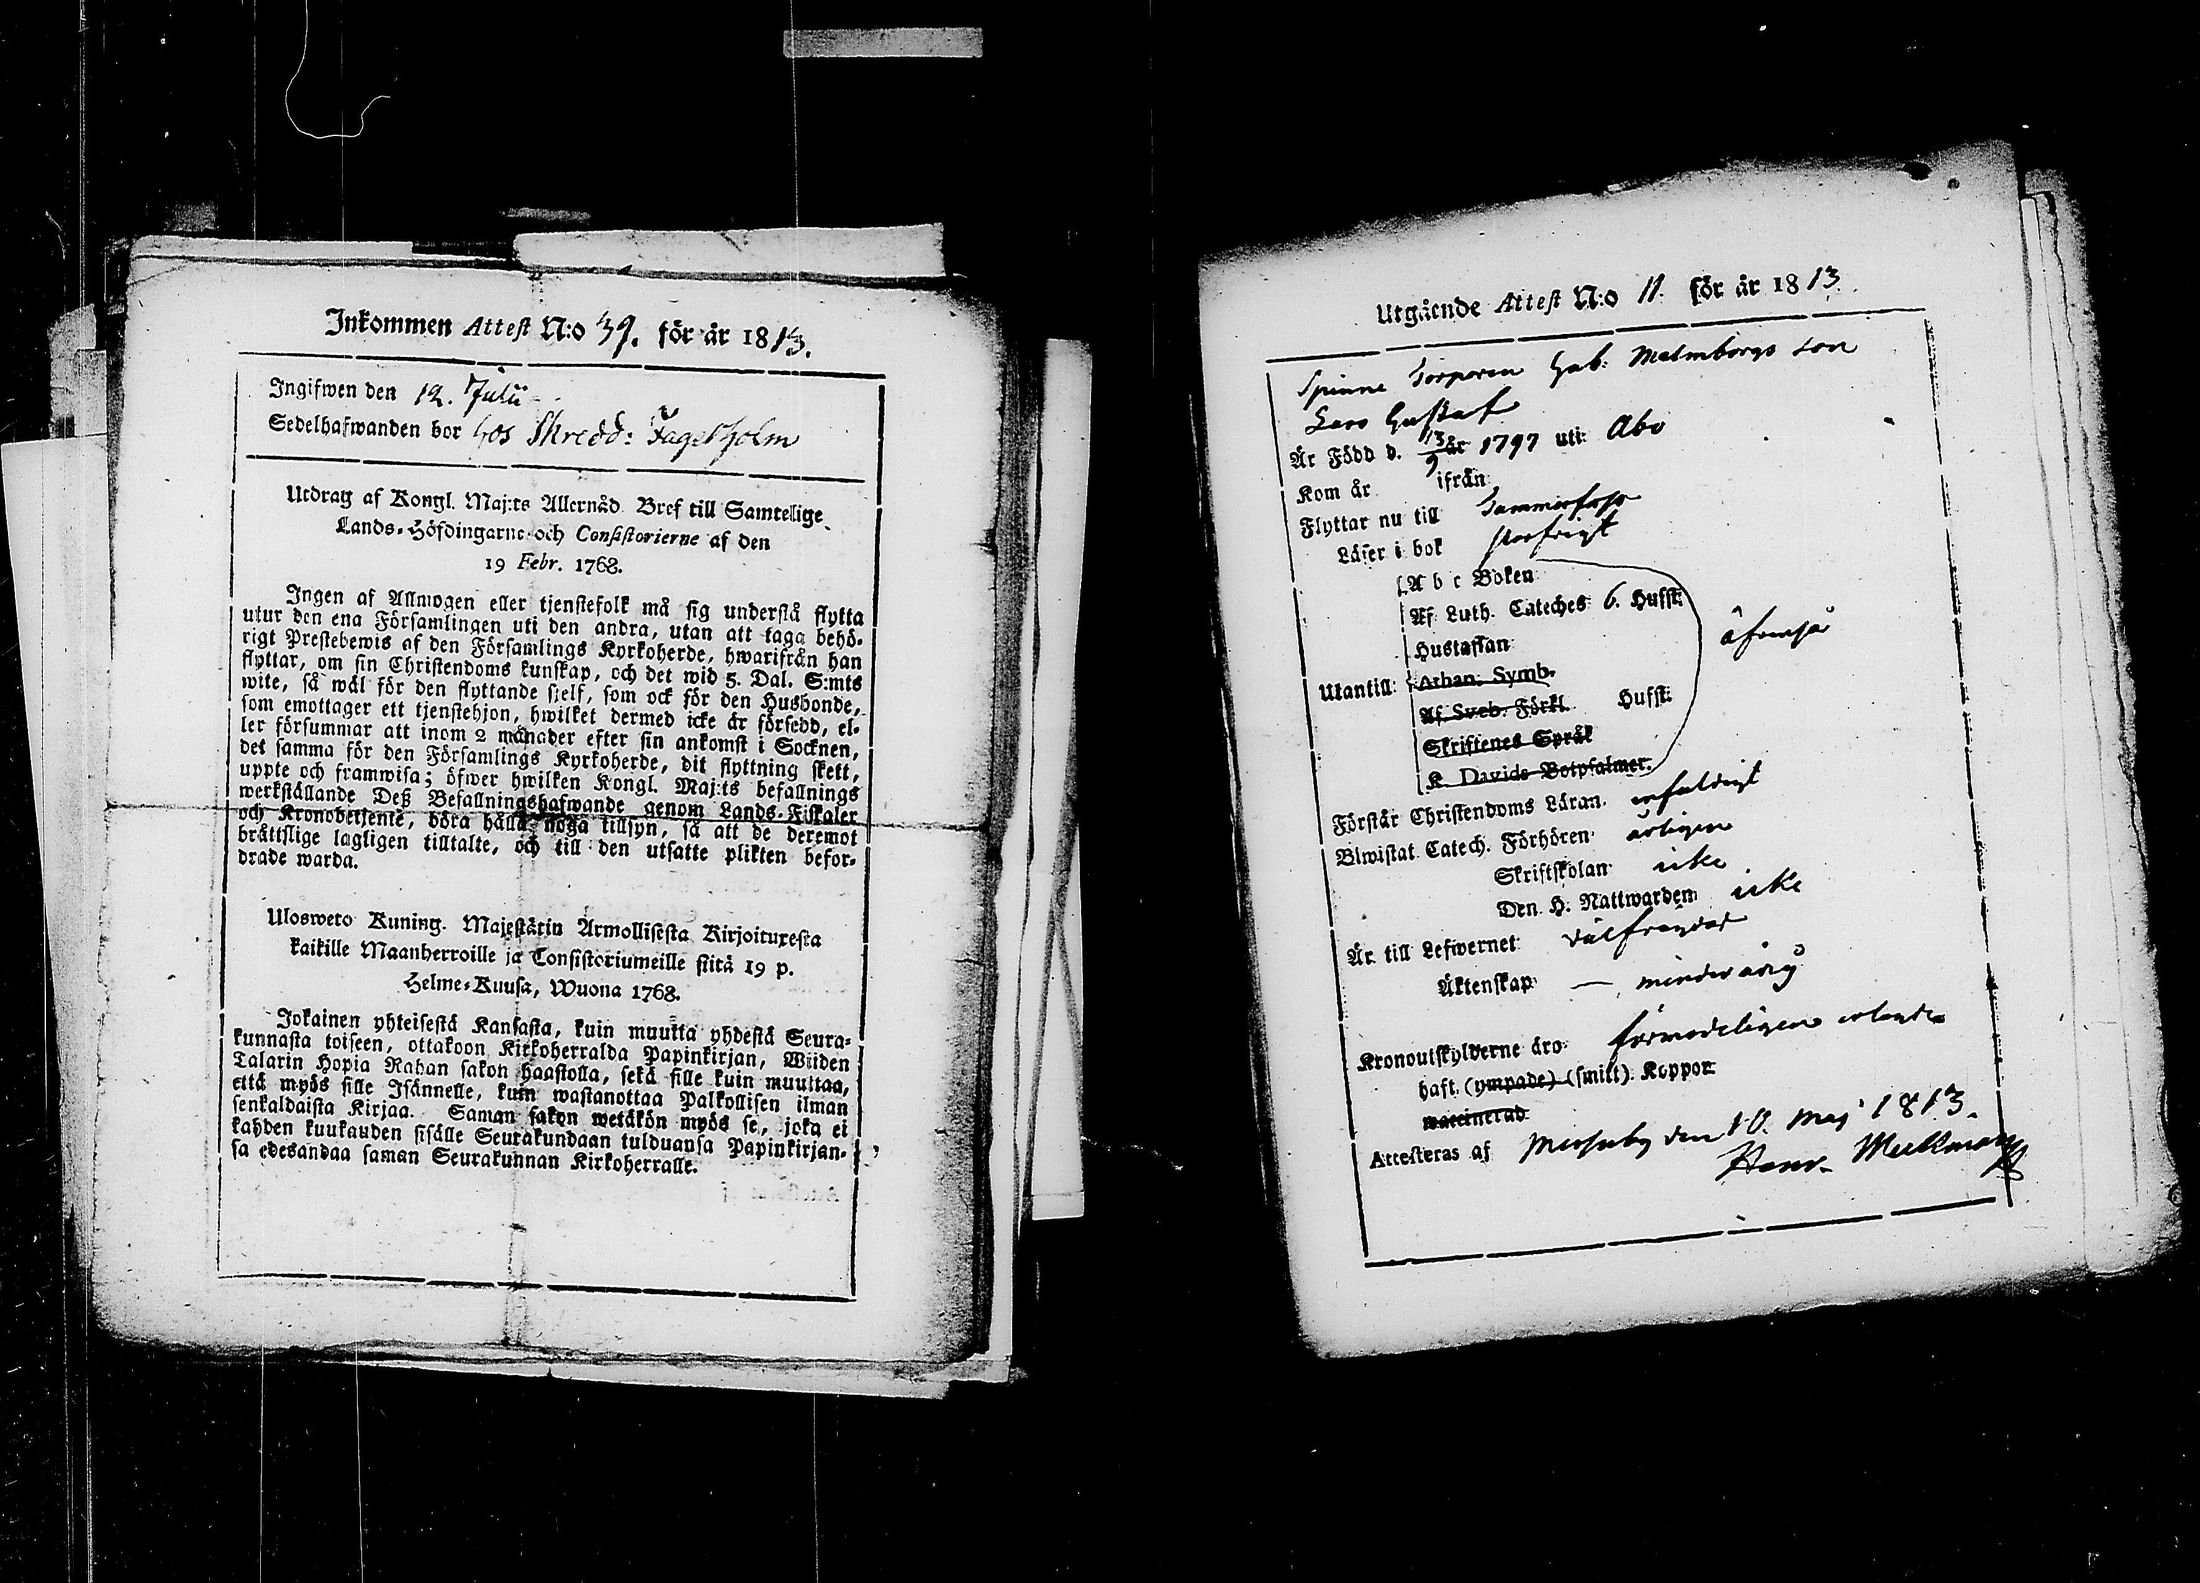 Inkommen Attest N:o 39. för år 1813.
Ingifwen den 12. Julii
Sedelhafwanden bor hos Skredd: Fagerholm
Utdrag af Kongl. Maj:ts Allernåd. Bref till Samtelige
Lands-Höfdingarne och Consistorierne af den
19 Febr. 1768.
Ingen af Allmogen eller tjenstefolk må sig understå flytta
utur den ena Församlingen uti den andra, utan att taga behö-
rigt Prestebewis af den Församlings Kyrkoherde, hwarifrån han
flyttar, om sin Christendoms kunskap, och det wid 5. Dal. S:mts
wite, så wäl för den flyttande sjelf, som ock för den Husbonde,
som emottager ett tjenstehjon, hwilket dermed icke är försedd, el-
ler försummar att inom 2 månader efter sin ankomst i Socknen,
det samma för den Församlings Kyrkoherde, dit flyttning skett,
uppte och framwisa; öfwer hwilken Kongl. Maj:ts befallnings
werkställande Deß Befallningshafwande genom Lands-Fiskaler
och Kronobetjente, böra hålla noga tillsyn, så att de deremot
bråttslige lagligen tilltalte, och till den utsatte plikten befor-
drade warda.
Ulosweto Kuning. Majestätin Armollisesta Kirjoituxesta
kaikille Maanherroille ja Consistoriumeille siitä 19 p.
Helme-Kuusa, Wuona 1768.
Jokainen yhteisestä Kansasta, kuin muutta yhdestä Seura-
kunnasta toiseen, ottakoon Kirkoherralda Papinkirjan, Wiiden
Talarin Hopia Rahan sakon haastolla, sekä sille kuin muuttaa,
että myös sille Isännelle, kuin wastanottaa Palkollisen ilman
senkaldaista Kirjaa. Saman sakon wetäkön myös se, joka ei
kahden kuukauden sisälle Seurakundaan tulduansa Papinkirjan-
sa edesandaa saman Seurakunnan Kirkoherralle.
Utgående Attest N:o 11. för år 1813.
Spinne Corporen Gab: Malmborgs son
Lars Gustaf
Är Född d. 13/9 år 1797 uti Åbo
Kom år ifrån
Flyttar nu till Tammerfors
Läser i bok
A b c Boken
Af Luth. Cateches 6. Hufst:
Hustaflan
Utantill: Athan. Symb.
Af Sveb. Förkl. Hufst:
Skriftenes Språk
K. Davids Botpsalmer.
Förstår Christendoms Läran. enfaldigt
Biwistat Catech. Förhören årligen
Skriftskolan icke
Den H. Nattwarden icke
Är till Lefwernet välfrejdad
Äktenskap — minderårig
Kronoutskylderne äro förmodeligen erlagde
haft (ympade) (smitt). Koppor
vaccinerad
Attesteras af den 10. Maj 1813.
Henr.